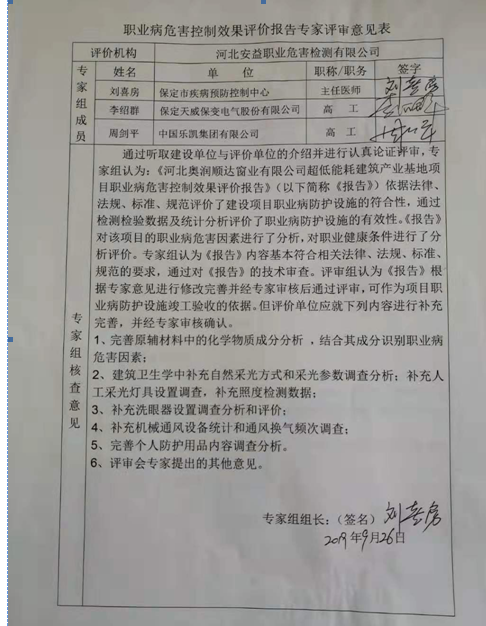 职业病危害控制效果评价报告专家评审意见表
评价机构 河北安益职业危害检测有限公司
专家组成员 姓名 单 位 职称/职务 签字
刘喜房 保定市疾病预防控制中心 主任医师 刘喜房
李绍群 保定天威保变电气股份有限公司 高 工
周剑平 中国乐凯集团有限公司 高 工
专家组核查意见
通过听取建设单位与评价单位的介绍并进行认真论证评审，专
家组认为：《河北奥润顺达窗业有限公司超低能耗建筑产业基地项
目职业病危害控制效果评价报告》（以下简称《报告》）依据法律、
法规、标准、规范评价了建设项目职业病防护设施的符合性，通过
检测检验数据及统计分析评价了职业病防护设施的有效性。《报告》
对该项目的职业病危害因素进行了分析，对职业健康条件进行了分
析评价。专家组认为《报告》内容基本符合相关法律、法规、标准、
规范的要求，通过对《报告》的技术审查。评审组认为《报告》
根据专家意见进行修改完善并经专家审核后通过评审，可作为项目职
业病防护设施竣工验收的依据。但评价单位应就下列内容进行补充
完善，并经专家审核确认。
1、完善原辅材料中的化学物质成分分析，结合其成分识别职业病
危害因素；
2、建筑卫生学中补充自然采光方式和采光参数调查分析；补充人
工采光灯具设置调查，补充照度检测数据；
3、补充洗眼器设置调查分析和评价；
4、补充机械通风设备统计和通风换气频次调查；
5、完善个人防护用品内容调查分析。
6、评审会专家提出的其他意见。
专家组组长：（签名） 刘喜房
2019年9月26日